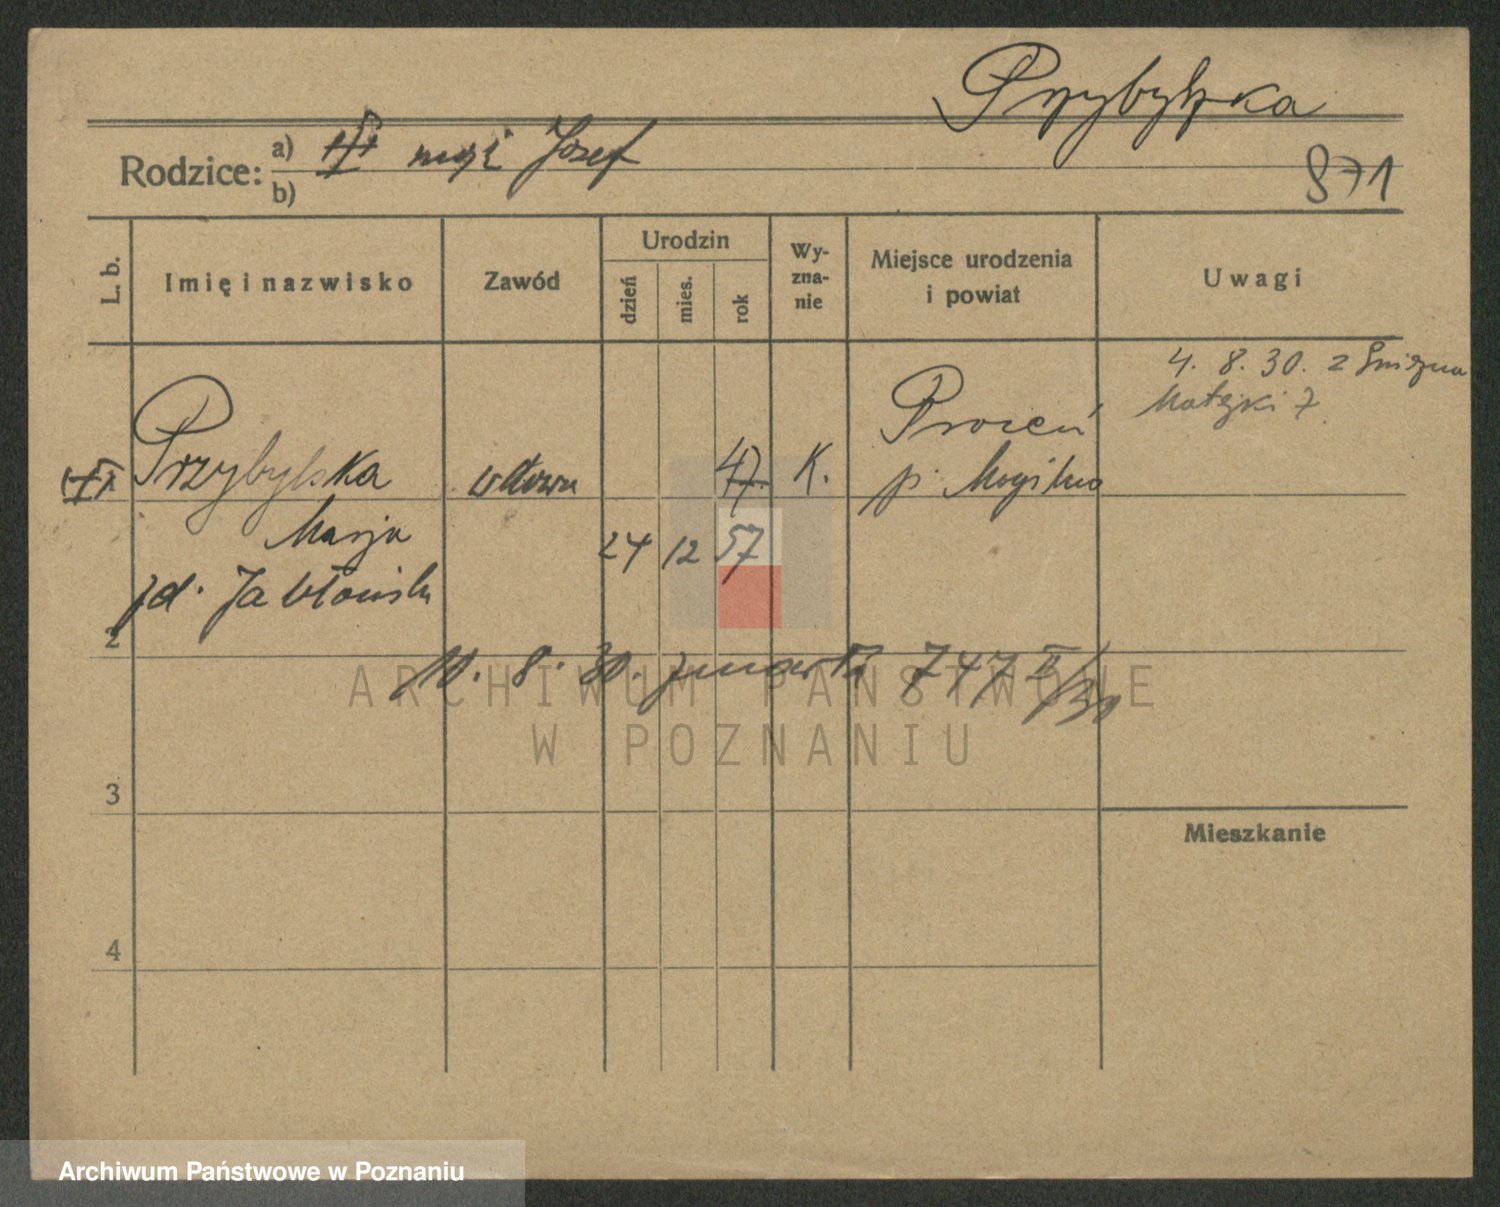 Przybylska
Rodzice: a) mąż Józef
b)
871
L. b.
Imię i nazwisko
Zawód
Urodzin
dzień
mies.
rok
Wy-
zna-
nie
Miejsce urodzenia
i powiat
Uwagi
4. 8. 30. z Gniezna
Matejki 7
Przybylska
wdowa
47.
K.
p. Mogilno
Marja
24 12 57
zd. Jabłońska
2
10. 8. 30. zmarła 747 II/30
3
Mieszkanie
4
ARCHIWUM PAŃSTWOWE
W POZNANIU
Archiwum Państwowe w Poznaniu